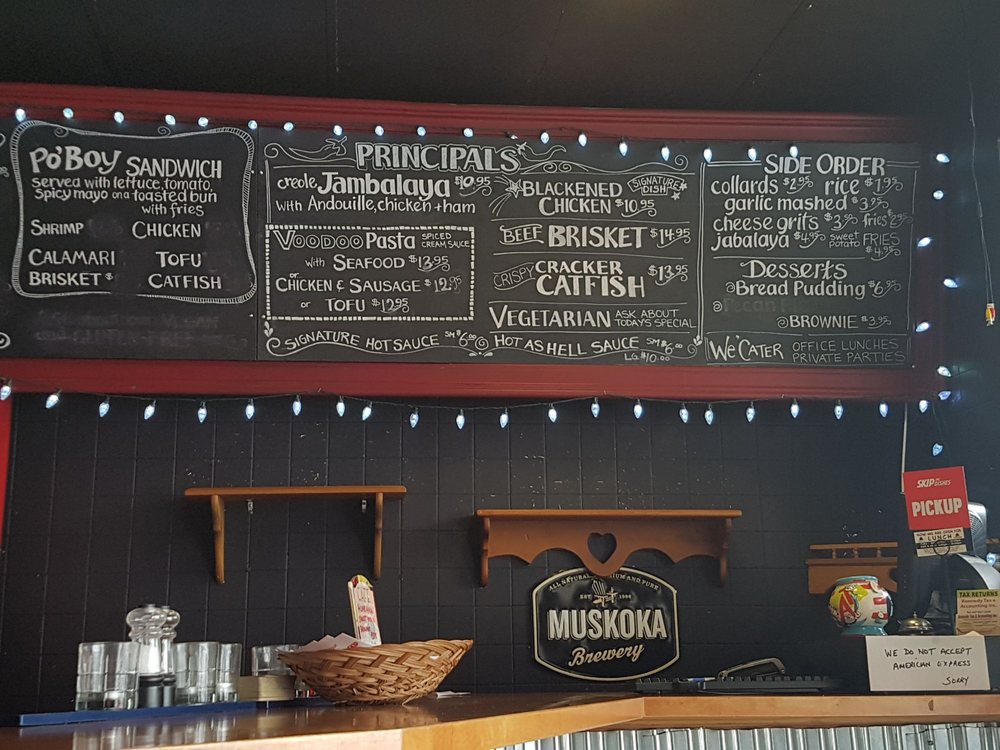 Po'Boy SANDWICH
served with lettuce, tomato,
spicy mayo on a toasted bun
with fries
SHRIMP CHICKEN
CALAMARI TOFU
BRISKET CATFISH
PRINCIPALS
creole Jambalaya $10.95
with Andouille, chicken + ham
VOODOO Pasta SPICED CREAM SAUCE
with SEAFOOD $13.95
or
CHICKEN & SAUSAGE $12.95
or TOFU $12.95
BLACKENED CHICKEN $10.95
SIGNATURE DISH
BEEF BRISKET $14.95
CRISPY CRACKER CATFISH $13.95
VEGETARIAN ASK ABOUT TODAYS SPECIAL
SIGNATURE HOT SAUCE SM $6.00
HOT AS HELL SAUCE SM $6.00
LG $10.00
SIDE ORDER
collards $2.95 rice $1.95
garlic mashed $3.95
cheese grits $3.95 fries $2.95
jabalaya $4.95 sweet potato FRIES $4.95
Desserts
Bread Pudding $6.95
Pecan
BROWNIE $3.95
We CATER OFFICE LUNCHES
PRIVATE PARTIES
SKIP THE DISHES
PICKUP
LUNCH
MUSKOKA
Brewery
TAX RETURNS
WE DO NOT ACCEPT
AMERICAN EXPRESS
SORRY